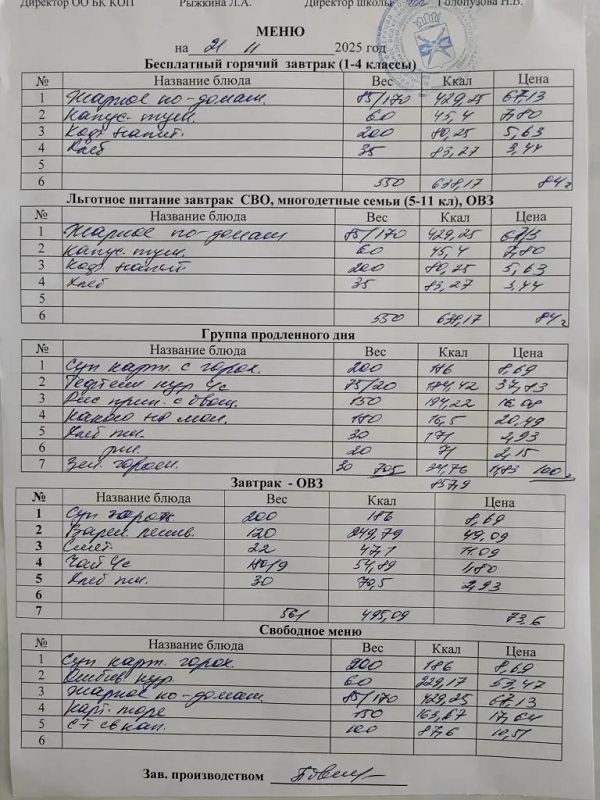 Директор ОО БК КОП Рыжкина Л.А. Директор школы Голопузова Н.В.
МЕНЮ
на 21 11 2025 год
Бесплатный горячий завтрак (1-4 классы)
№ Название блюда Вес Ккал Цена
1 Жаркое по-домаш. 85/170 429,25 67,13
2 Капус. туш. 60 45,4 7,80
3 Коф. напит. 200 80,25 5,63
4 Хлеб 35 83,27 3,44
5
6 550 638,17 84
Льготное питание завтрак СВО, многодетные семьи (5-11 кл), ОВЗ
№ Название блюда Вес Ккал Цена
1 Жаркое по-домаш 85/170 429,25 67,13
2 Капус. туш. 60 45,4 7,80
3 Коф. напит 200 80,25 5,63
4 Хлеб 35 83,27 3,44
5
6 550 638,17 84
Группа продленного дня
№ Название блюда Вес Ккал Цена
1 Суп карт. с горох. 200 8,69
2 Тефтели кур 75/20 184,42
3 Рис с овощ. 150 194,22 16,08
4 Какао на мол. 180 20,49
5 Хлеб пш. 30 171 2,93
6 рж. 20 71 2,15
7 Зел. горош. 30 705 34,76 100
857,9
Завтрак - ОВЗ
№ Название блюда Вес Ккал Цена
1 Суп горох 200 186 8,69
2 Варен. ленив. 120 249,79 49,09
3 Смет. 22 47,1 11,09
4 Чай 180/9 54,89 1,80
5 Хлеб пш. 30 70,5 2,93
6
7 561 495,09 73,6
Свободное меню
№ Название блюда Вес Ккал Цена
1 Суп карт. горох. 200 186 8,69
2 кур. 60 229,17 53,47
3 Жаркое по-домаш. 85/170 429,25 67,13
4 Карт. пюре 150 163,67 17,64
5 100 87,6 10,51
6
Зав. производством